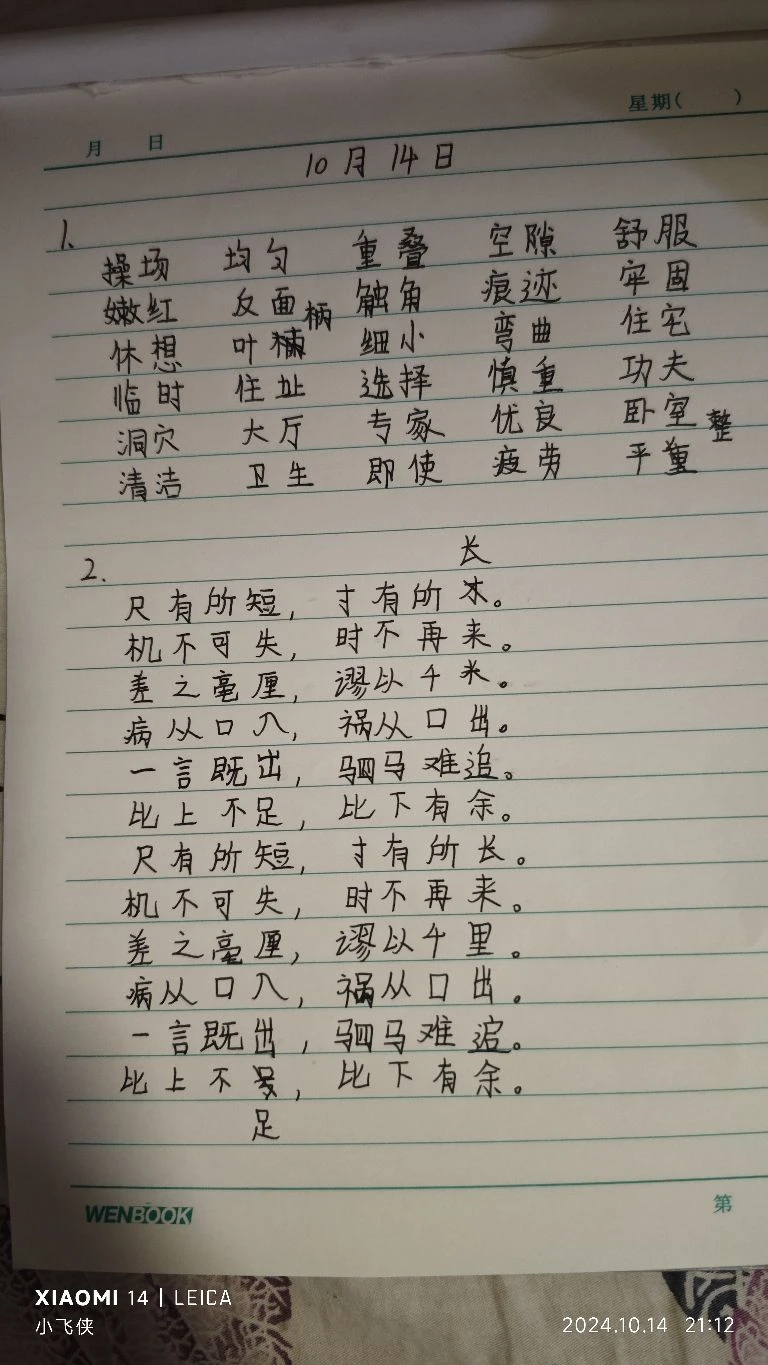 月 日 星期( )
10月14日
1.
操场 均匀 重叠 空隙 舒服
嫩红 反面 触角 痕迹 牢固
柄
休想 叶 细小 弯曲 住宅
临时 住址 选择 慎重 功夫
洞穴 大厅 专家 优良 卧室
整
清洁 卫生 即使 疲劳 平
2.
长
尺有所短,寸有所。
机不可失,时不再来。
差之毫厘,谬以千米。
病从口入,祸从口出。
一言既出,驷马难追。
比上不足,比下有余。
尺有所短,寸有所长。
机不可失,时不再来。
差之毫厘,谬以千里。
病从口入,祸从口出。
一言既出,驷马难追。
比上不,比下有余。
足
WENBOOK 第
XIAOMI 14 | LEICA
小飞侠 2024.10.14 21:12